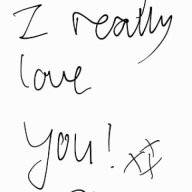 I really
love
you!